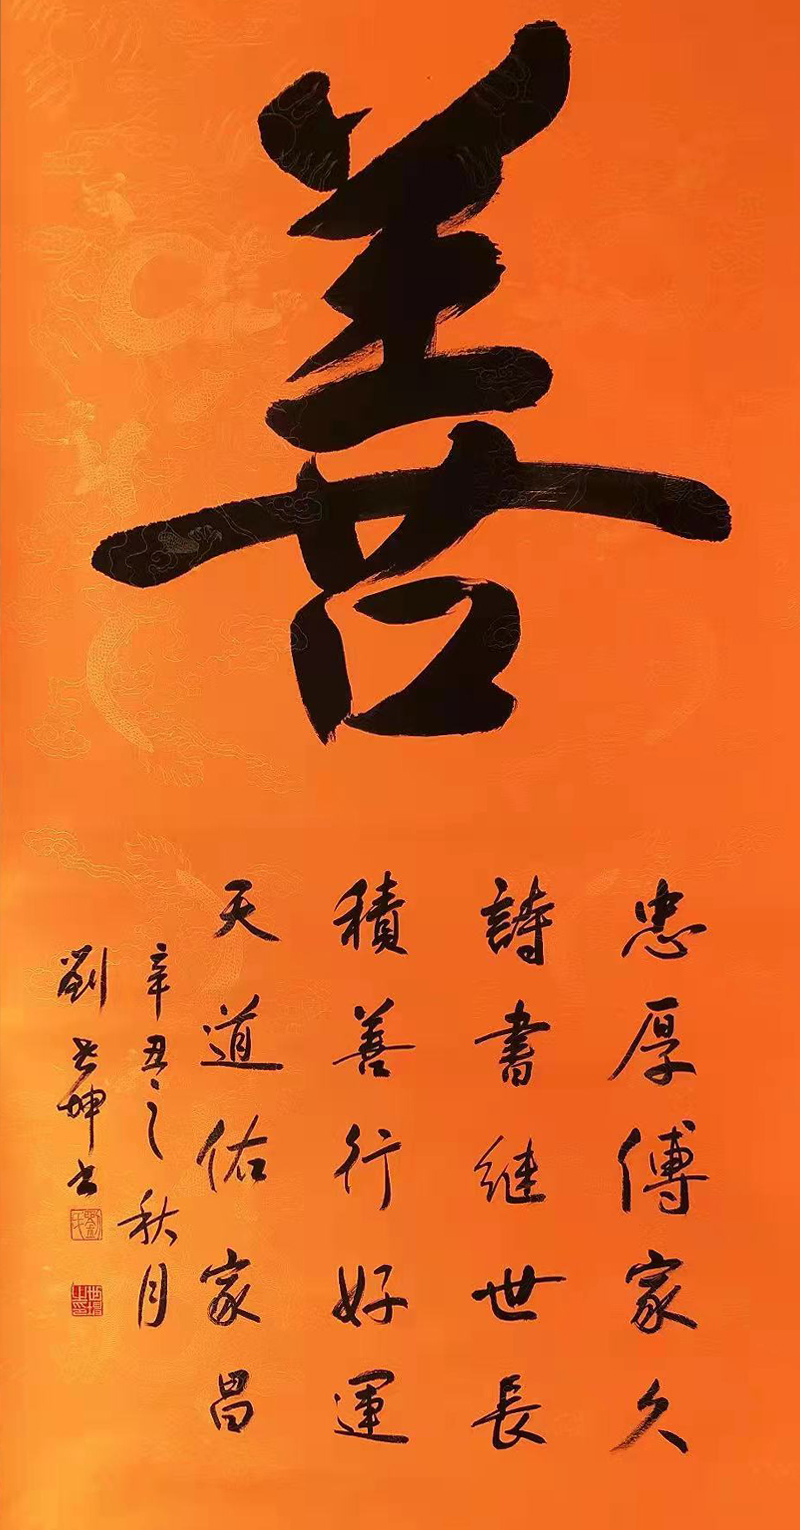 善
忠厚傳家久
詩書継世長
積善行好運
天道佑家昌
辛丑之秋月
劉世坤书